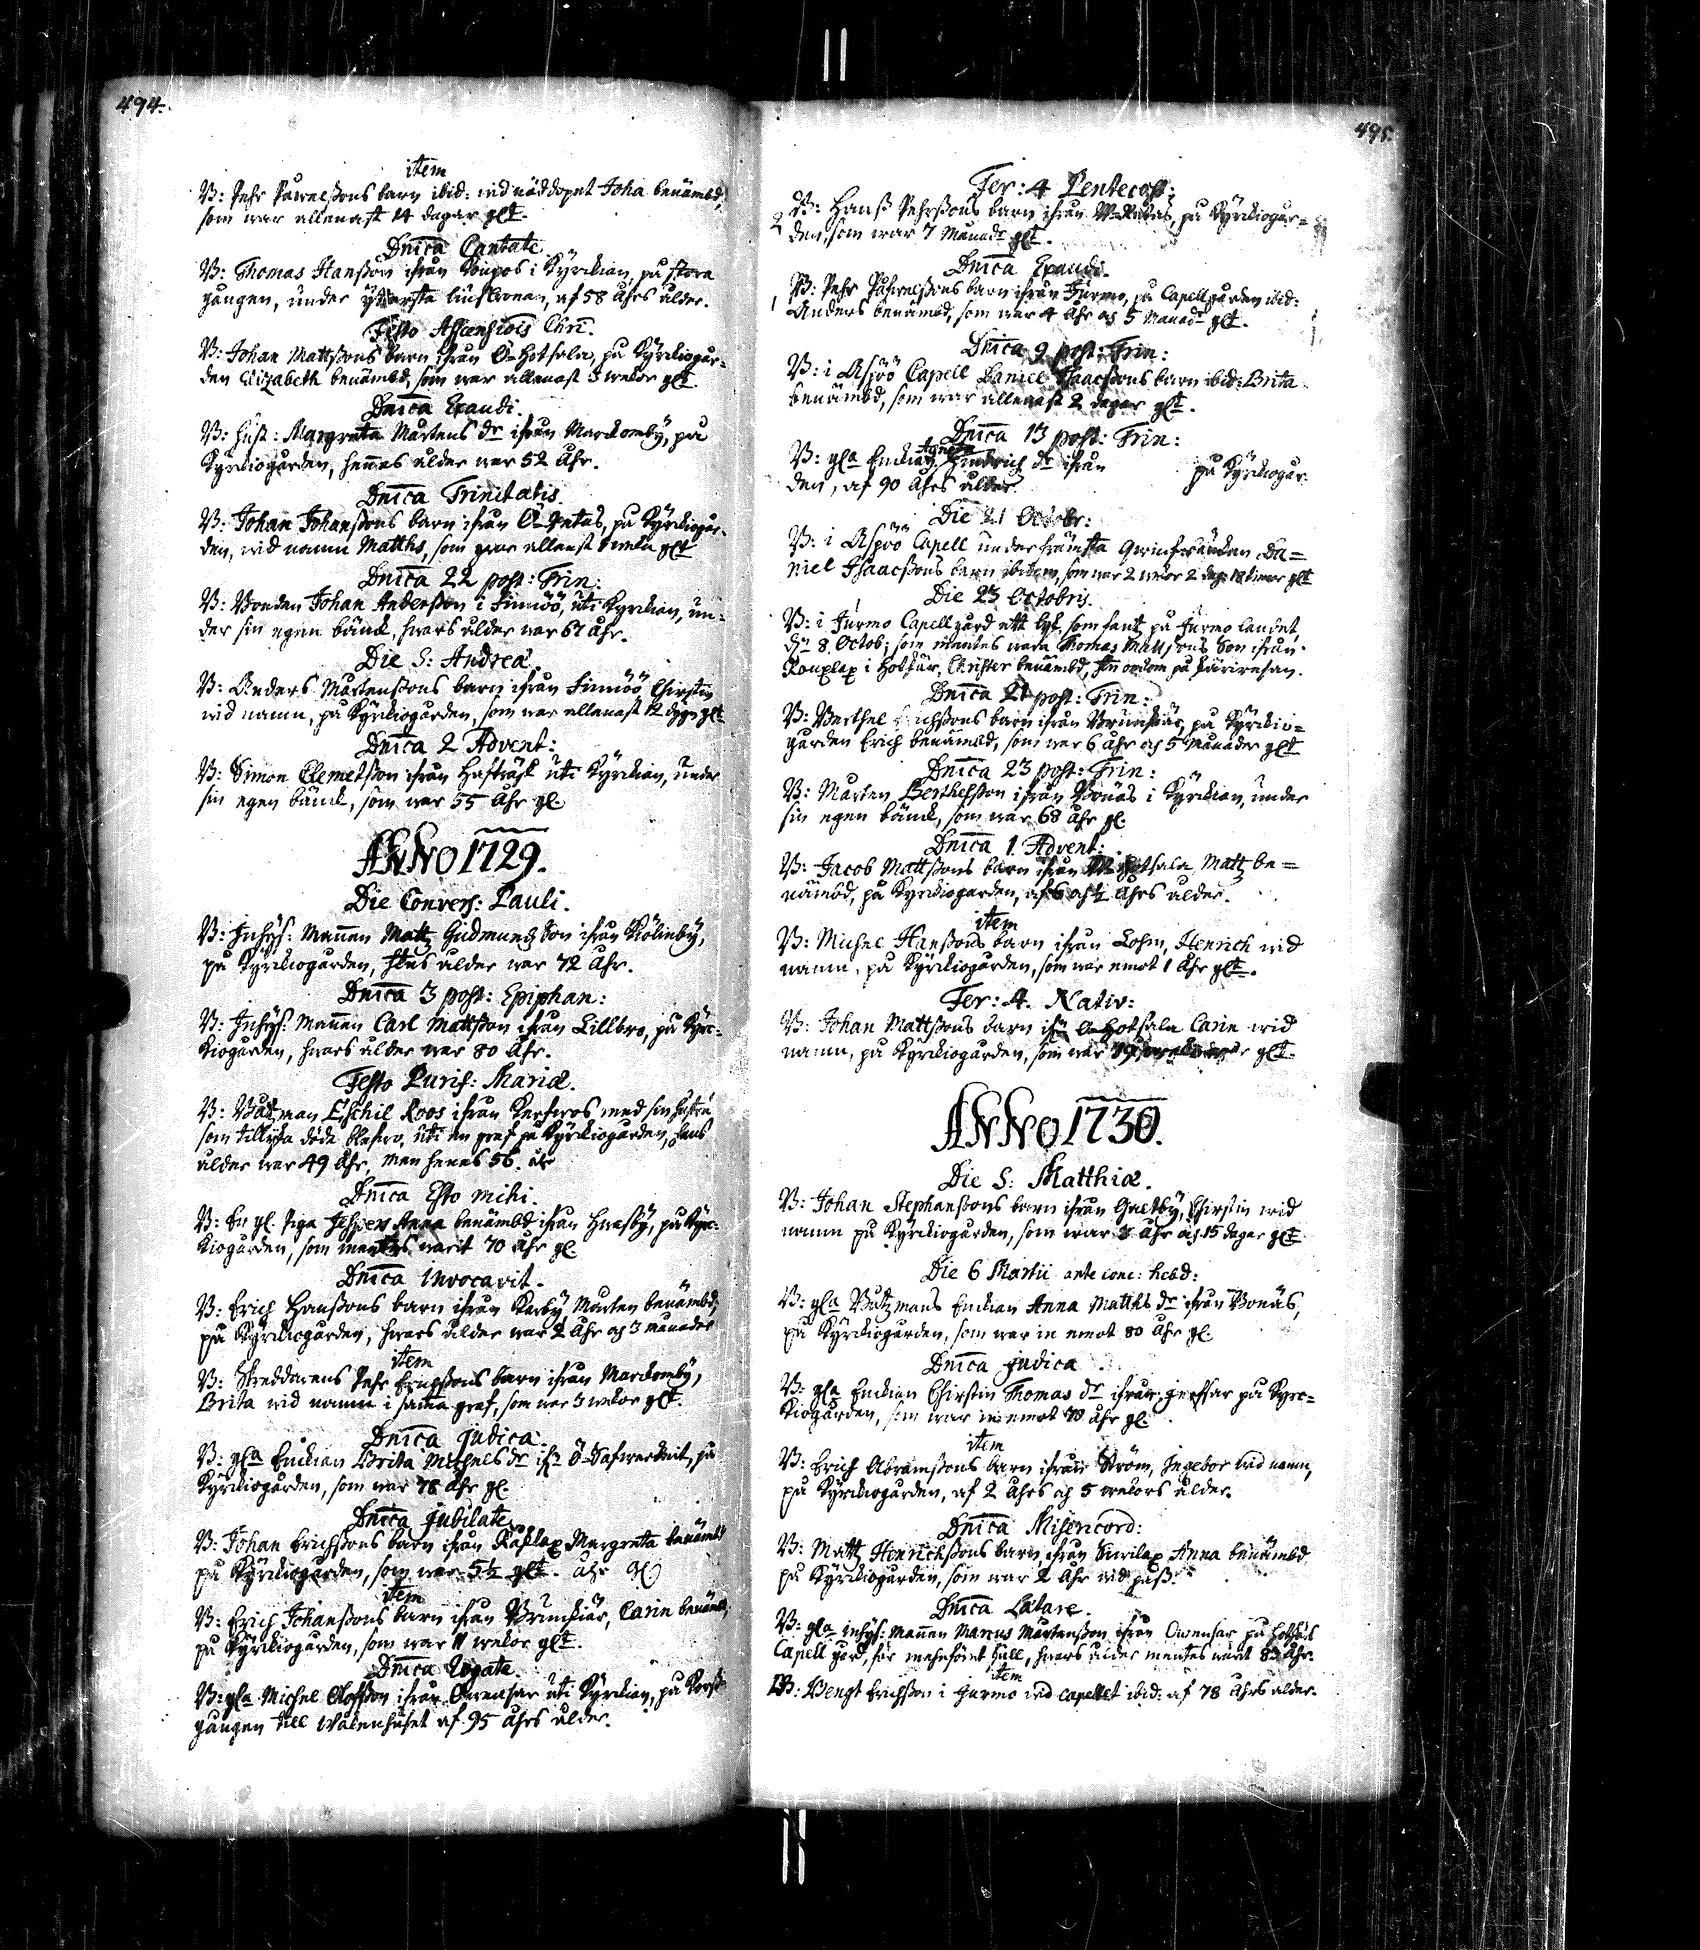 494.
item
B: Pehr Påwelßons barn ibid: wid näddopet Joha benämbd,
som war allenast 14 dagar glt.
Dnica Cantate.
B: Thomas Hanßon ifrån Koupos i Kÿrckian, på stora
gången, under ÿttersta liuscronan, af 58 åhrs ålder.
Festo Ascensiois Chri.
B: Johan Mattßons barn ifrån Ö-Hotsala, på Kÿrckiogår-
den Elizabeth benämbd, som war allenast 3 wekor glt.
Dnica Exaudi.
B: Hust: Margreta Mårtens dr ifrån Marckombÿ, på
Kÿrckiogården, hennes ålder war 52 åhr.
Dnica Trinitatis.
B: Johan Johanßons barn ifrån på Kÿrckiogår-
den, wid namn Matths, som war allenast weku glt
Dnica 22 post: Trin:
B: Bonden Johan Anderßon i Finnöö, uti Kÿrckian, un-
der sin egen bänck, hwars ålder war 67 åhr.
Die S: Andreæ.
B: Anders Mårtenßons barn ifrån Finnöö Chirstin
wid namn, på Kÿrckiogården, som war allenast 12 dygn glt
Dnica 2 Advent:
B: Simon Clemetßon ifrån Hafträsk uti Kÿrckian, under
sin egen bänck, som war 55 åhr gl.
ANNO 1729.
Die Convers: Pauli.
B: Inhÿs: Mannen Matz Gudmundz Son ifrån Kölinbÿ,
på Kÿrckiogården, hans ålder war 72 åhr.
Dnica 3 post: Epiphan:
B: Inhÿs: Mannen Carl Mattßon ifrån Lillbro, på Kÿrc-
kiogården, hwars ålder war 80 åhr.
Festo Purif: Mariæ.
B: Båtzman Eschil Roos ifrån med sin hustru
som tillÿka döde blefwo, uti en graf på Kÿrckiogården, hans
ålder war 49 åhr, men hennes 56. åhr
Dnica Esto mihi.
B: En gl. Piga Anna benämbd ifrån Hwasbÿ, på Kÿrc-
kiogården, som mentes warit 70 åhr gl.
Dnica Invocavit.
B: Erich Hanßons barn ifrån Karbÿ Mårten benämbd,
på Kÿrckiogården, hwars ålder war 2 åhr och 3 månader
item
B: Skreddarens Pehr Erichßons barn ifrån Marckombÿ,
Brita wid namn i samma graf, som war 3 wekor glt.
Dnica Judica:
B: gla Enckian Brita Michels dr ifrn Ö-Saswerckeit, på
Kÿrckiogården, som war 78 åhr gl.
Dnica Jubilate.
B: Johan Erichßons barn ifrån Räfslax Margreta benämbd
på Kÿrckiogården, som war 5½ glt. åhr
item
B: Erich Johanßons barn ifrån Brunskiär, Carin benämbd,
på Kÿrckiogården, som war 11 wekor glt.
Dnica Rogate.
B: gla Michel Oloffßon ifrån Öwensar uti Kÿrckian, på Korss-
gången till Wåkenhuset af 95 åhrs ålder.
495.
Fer: 4 Pentecost:
2 B: Hanß Pehrßons barn ifrån på Kÿrckiogår-
den, som war 7 Månadr glt.
Dnica Exaudi.
1 B: Pehr Påhwelßons barn ifrån Jurmo, på Capellgården ibid:
Anders benämbd, som war 4 åhr och 5 Månadr glt.
Dnica 9 post: Trin:
B: i Aspöö Capell Daniel Isaacßons barn ibid: Brita
benämbd, som war allenast 2 dagar glt.
Dnica 13 post: Trin:
Agneta
B: gla Enckian Hindrich dr ifrån på Kÿrckiogår-
den, af 90 åhrs ålder.
Die 21 Octobr:
B: i Aspöö Capell under främsta Da=
niel Isaacßons barn ibidem, som war 2 wekor 2 dagr 18 timar glt
Die 23 Octobris.
B: i Jurmo Capellgård ett lÿk, som fantz på Jurmo landet
dn 8 Octob; som mentes wara Thomas Mattßons Son ifrån
i Hotskär, Christer benämbd,
Dnica 21 post: Trin:
B: Berthel Erichßons barn ifrån Brunskiär, på Kÿrckio=
gården Erich benämbd, som war 6 åhr och 5 Månader glt
Dnica 23 post: Trin:
B: Mårten Berthelßon ifrån Bonäs i Kÿrckian, under
sin egen bänck, som war 68 åhr gl.
Dnica 1. Advent:
B: Jacob Mattßons barn ifrån Hotsala Matz be=
nämbd, på Kÿrckiogården, af 6 och ½ åhrs ålder.
item
B: Michel Hanßons barn ifrån Lohm, Henrich wid
namn, på Kÿrckiogården, som war emot 1 åhr glt.
Fer: 4. Nativ:
B: Johan Mattßons barn Hotsala Carin wid
namn, på Kÿrckiogården, som war 19 glt.
ANNO 1730.
Die S: Matthiæ.
B: Johan Stephanßons barn ifrån Galtbÿ, Chirstin wid
namn på Kÿrckiogården, som war 3 åhr och 15 dagar glt
Die 6 Martii ante conc: hebd:
B: gla Båtzmans Enckian Anna Matths dr ifrån Bonäs,
på Kÿrckiogården, som war in emot 80 åhr gl.
Dnica Judica
B: gla Enckian Chirstin Thomas dr ifrån på Kÿrc=
kiogården, som war in emot 70 åhr gl.
item
B: Erich Abramßons barn ifrån Ström, Ingebor wid namn,
på Kÿrckiogården, af 2 åhrs och 5 wekors ålder.
Dnica Misericord:
B: Matz Henrichßons barn ifrån Anna benämbd
på Kÿrckiogården, som war 2 åhr wid paß.
Dnica Lætare.
B: gla inhÿs: Mannen Marcus Mårtenßon ifrån Öwensar på Hotskiärs
Capell gård, för menföret skull, hwars ålder mentes warit 83 åhr.
item
B: Bengt Erichßon i Jurmo wid Capellet ibid: af 78 åhrs ålder.